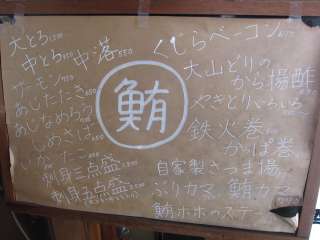 大とろ
中とろ
中落
サーモン
あじたたき
あじなめろう
しめさば
いか たこ
刺身三点盛
刺身五点盛
鮪
くじらベーコン
大山どりの
から揚 酢
やきとりいろいろ
鉄火巻
かっぱ巻
自家製さつま揚
ぶりカマ 鮪カマ
鮪ホホのステーキ